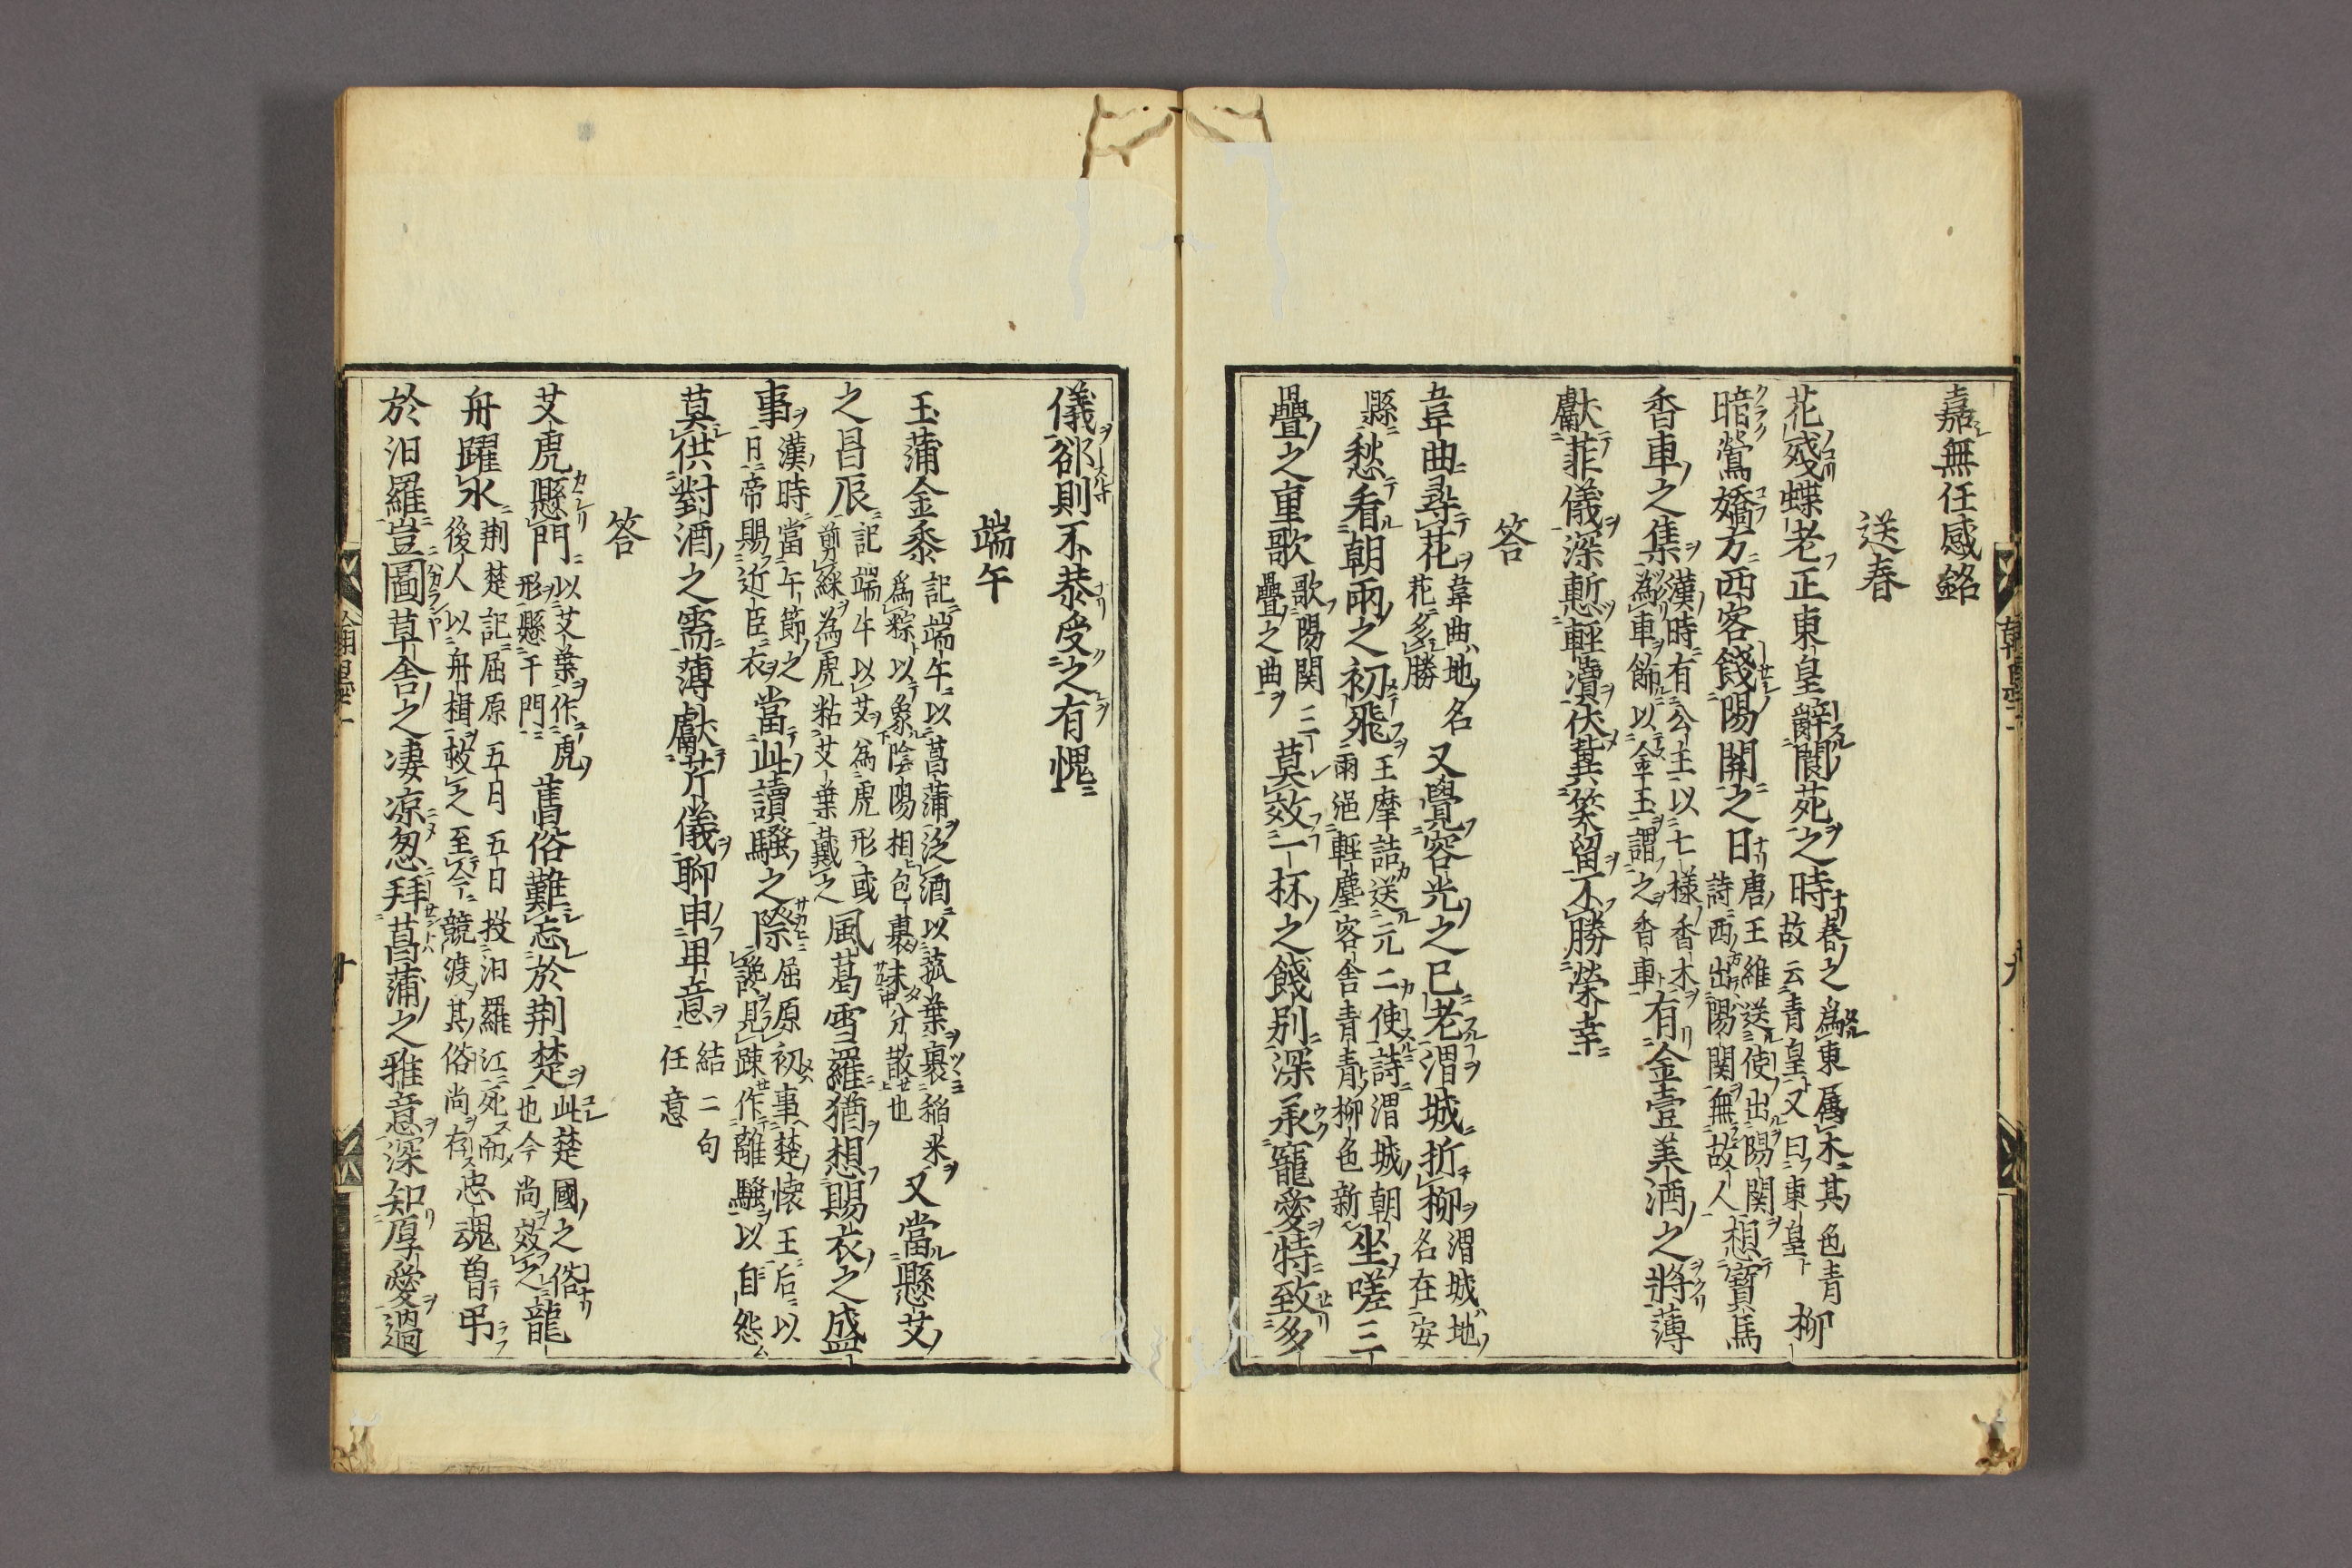 嘉無任感銘
送春
花殘蝶老正東皇辭閬苑之時春之為東屬木其色青故云青皇又曰東皇柳
暗鶯嬌方西客餞陽關之日唐王維送使出陽関詩西出陽関無故人想寶馬
香車之集漢時有公主以七様香木為車飾以金玉謂之香車有金壹美酒之將薄
獻菲儀深慙輕瀆伏冀笑留不勝榮幸
答
韋曲尋花韋曲地名花多勝又覺容光之已老渭城折柳渭城地名在安
縣愁看朝雨之初飛王摩詰送元二使詩渭城朝雨浥輕塵客舎青青柳色新坐嗟三
疊之重歌歌陽関三疊之曲莫效一杯之餞别深承寵愛特致多
儀郤則不恭受之有愧
端午
玉蒲金黍記端午以菖蒲泛酒以菰葉裹稲米為粽以象陰陽相包裹未分散也又當懸艾
之昌辰記端午以艾為虎形或剪綵為虎粘艾葉戴之風葛雪羅猶想賜衣之盛
事漢時當午節之日帝賜近臣衣當此讀騷之際屈原初事楚懐王后以讒見踈作離騷以自怨
莫供對酒之需薄獻芹儀聊申卑意結二句任意
答
艾虎懸門以艾葉作虎形懸于門舊俗難忘於荆楚此楚國之俗也今尚效之龍
舟躍水荆楚記屈原五日五日投汨羅江死而後人以舟楫救之至今競渡其俗尚存忠魂曽弔
於汨羅豈圖草舎之凄凉忽拜菖蒲之雅意深知厚愛過